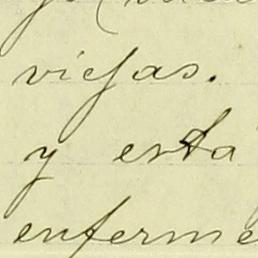 viejas.
y esta
enferme